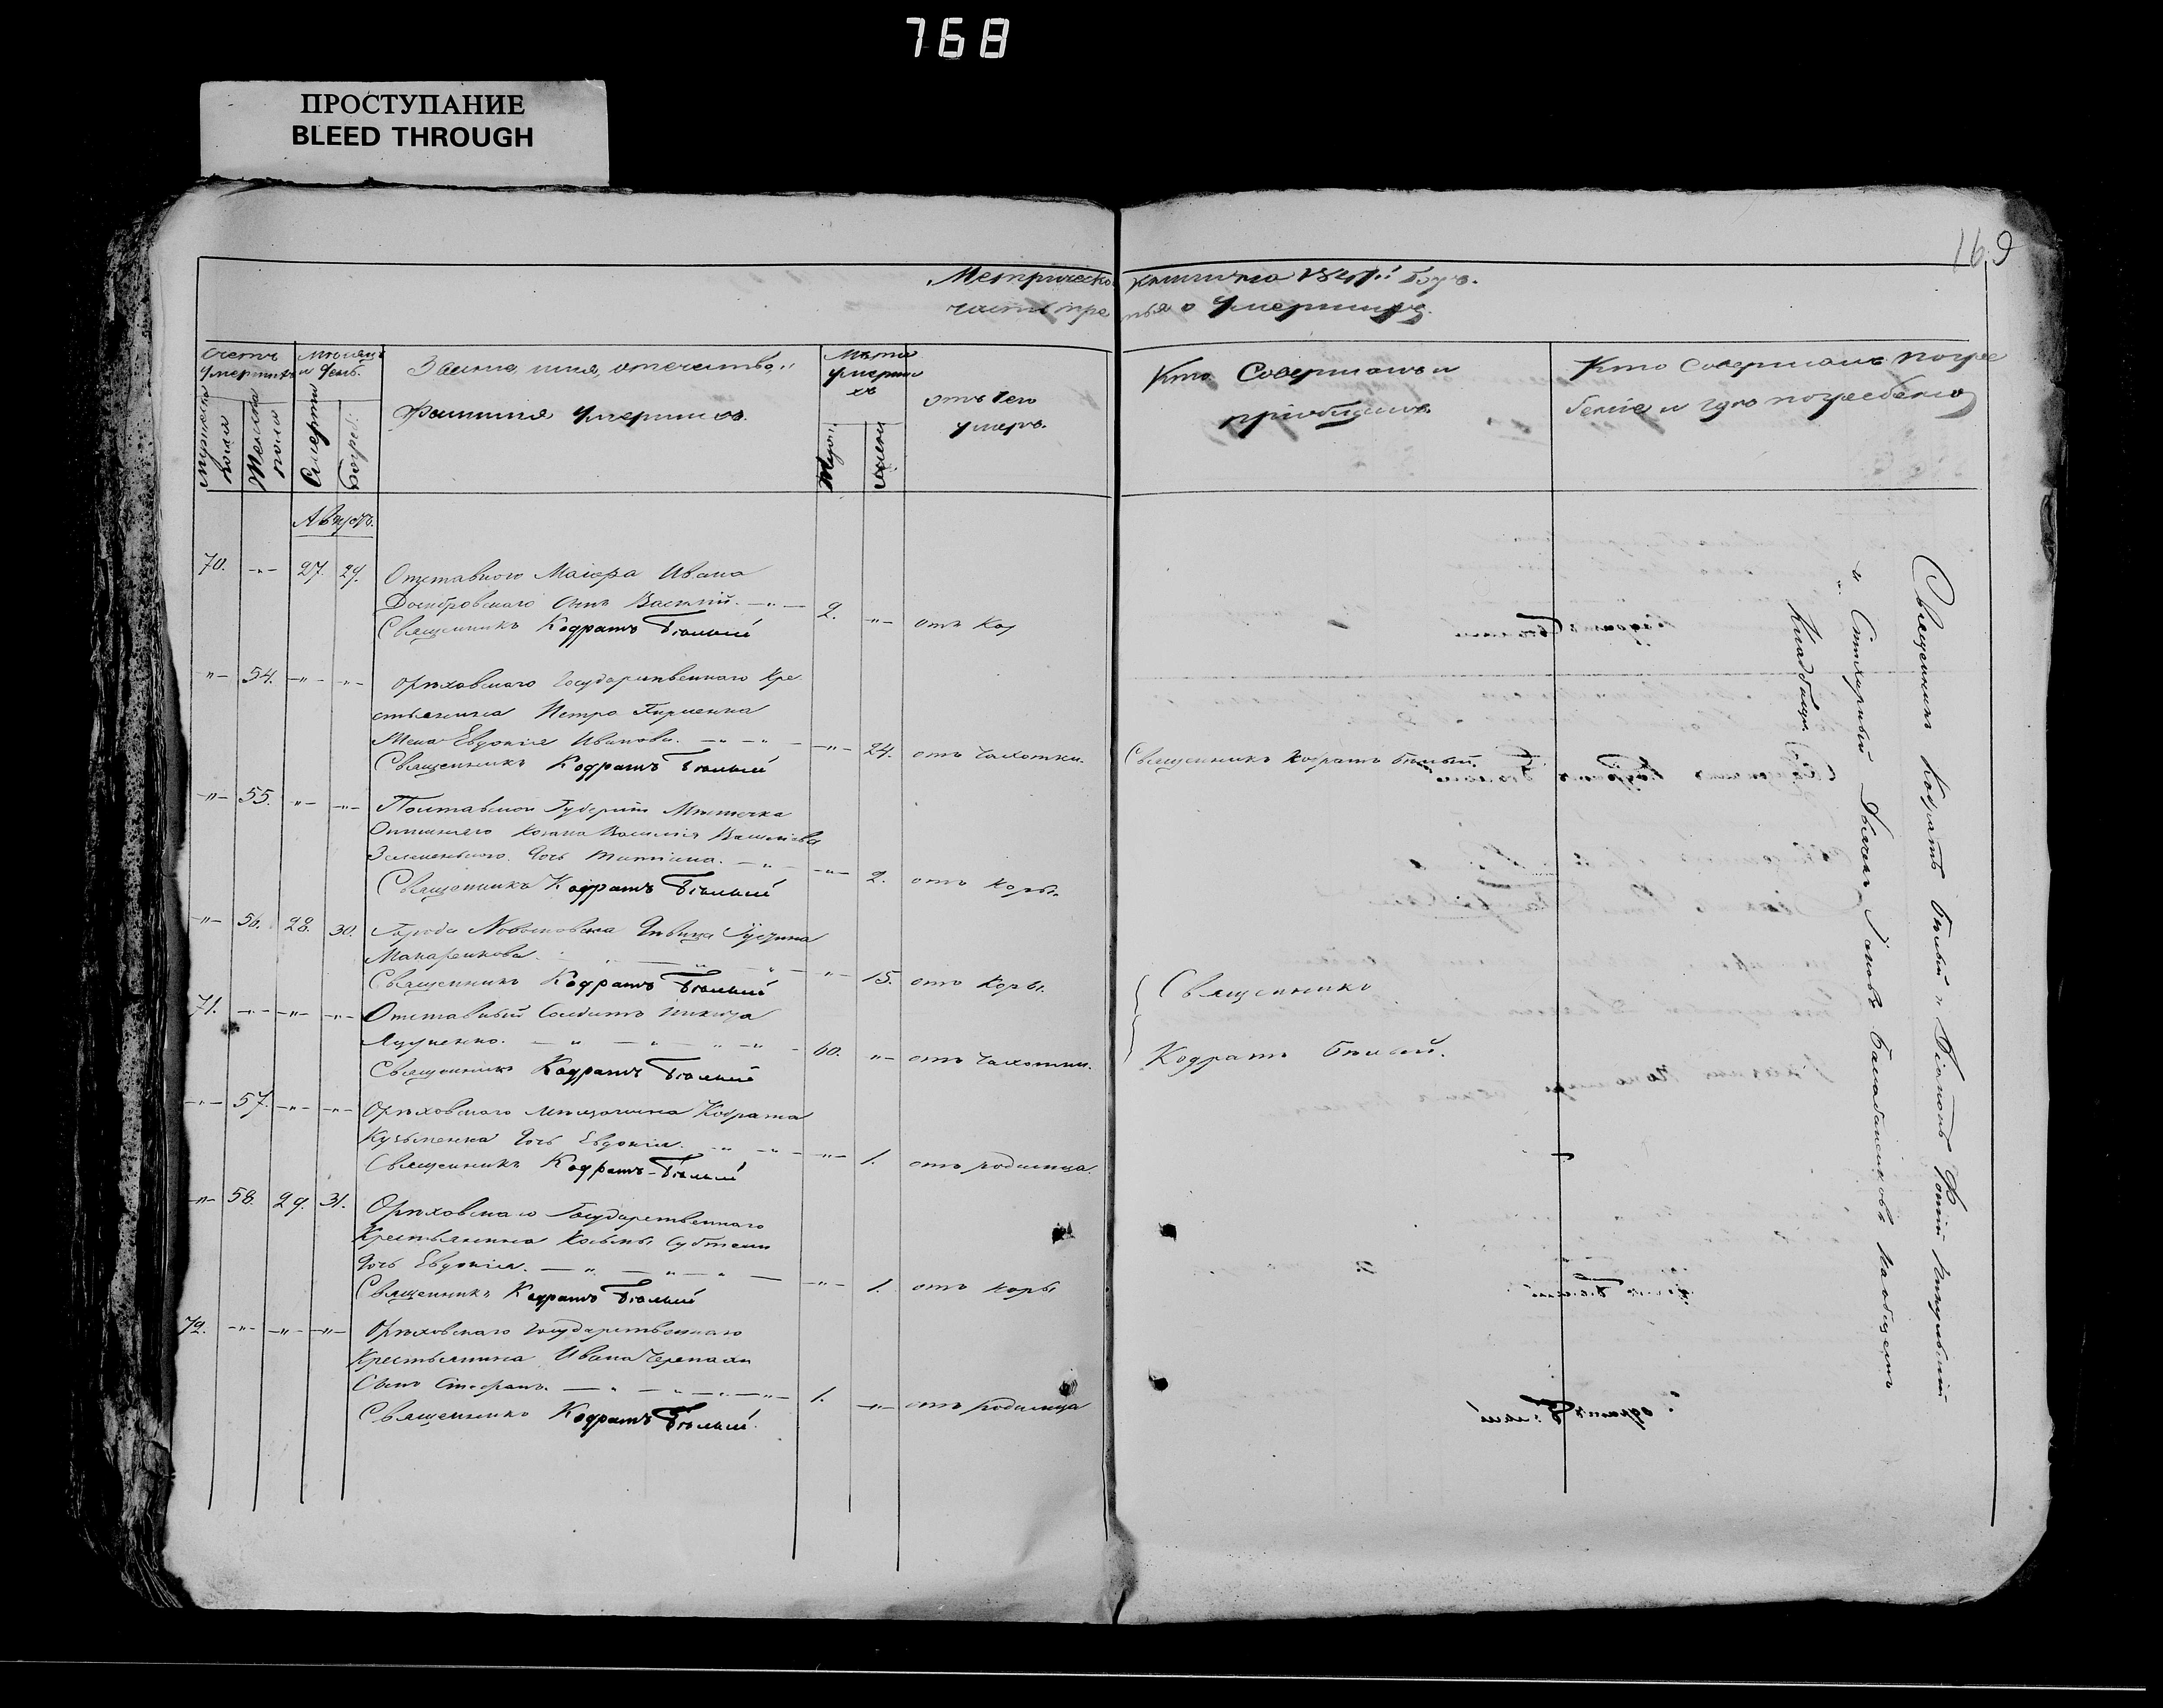 768
ПРОСТУПАНИЕ
BLEED THROUGH
169
Метрической книги на 184 года.
часть третья о умершихъ.
Счетъ умершихъ
Мужеска пола
Женска пола
Мѣсяцъ и день.
Смерти
Погреб:
Званіе, имя, отечество, и
фамилія умершихъ.
Лѣта умершихъ
Муж:
женск
отъ чего
умеръ.
Кто Совершалъ и
пріобщалъ.
Кто Совершалъ погре
беніе и гдѣ погребены
Августъ.
70. -"- 27. 29. Отставного Маіора Ивана
сынъ Василій. -"- 2. -"- отъ Кор
Священникъ Кодратъ Бѣлый
-"- 54. -"- -"- Орѣховскаго Государственнаго Кре
стьянина Петра
Жена Евдокія Иванова. -"- -"- -"- 24. отъ чахотки. Священникъ Кодратъ Бѣлый.
Священникъ Кодратъ Бѣлый
-"- 55. -"- -"- Полтавской Губерніи Мѣстечка
Козака Василія Васильева
дочь Татіана. -"- -"- 2. отъ Коры.
Священникъ Кодратъ Бѣлый
-"- 56. 28. 30. Города Новомосковска Дѣвица
Макаренкова. -"- 15. отъ Коры.
Священникъ Кодратъ Бѣлый
71. -"- -"- -"- Отставный Солдатъ Никита
60. -"- отъ чахотки.
Священникъ Кодратъ Бѣлый
Священникъ
Кодратъ Бѣлый.
-"- 57. -"- -"- Орѣховскаго мѣщанина Кодрата
Кузьменка дочь Евдокія. -"- 1. отъ родимца.
Священникъ Кодратъ Бѣлый
-"- 58. 29. 31. Орѣховскаго Государственнаго
Крестьянина Козьмы
дочь Евдокія. -"- -"- 1. отъ коры
Священникъ Кодратъ Бѣлый
72. -"- -"- -"- Орѣховскаго Государственнаго
Крестьянина Ивана Черепахи
Сынъ Стефанъ. -"- 1. -"- отъ родимца
Священникъ Кодратъ Бѣлый.
Священникъ Кодратъ Бѣлый и Діаконъ
и Стихарный Дьячекъ Яковъ на общемъ
Кладбищѣ.